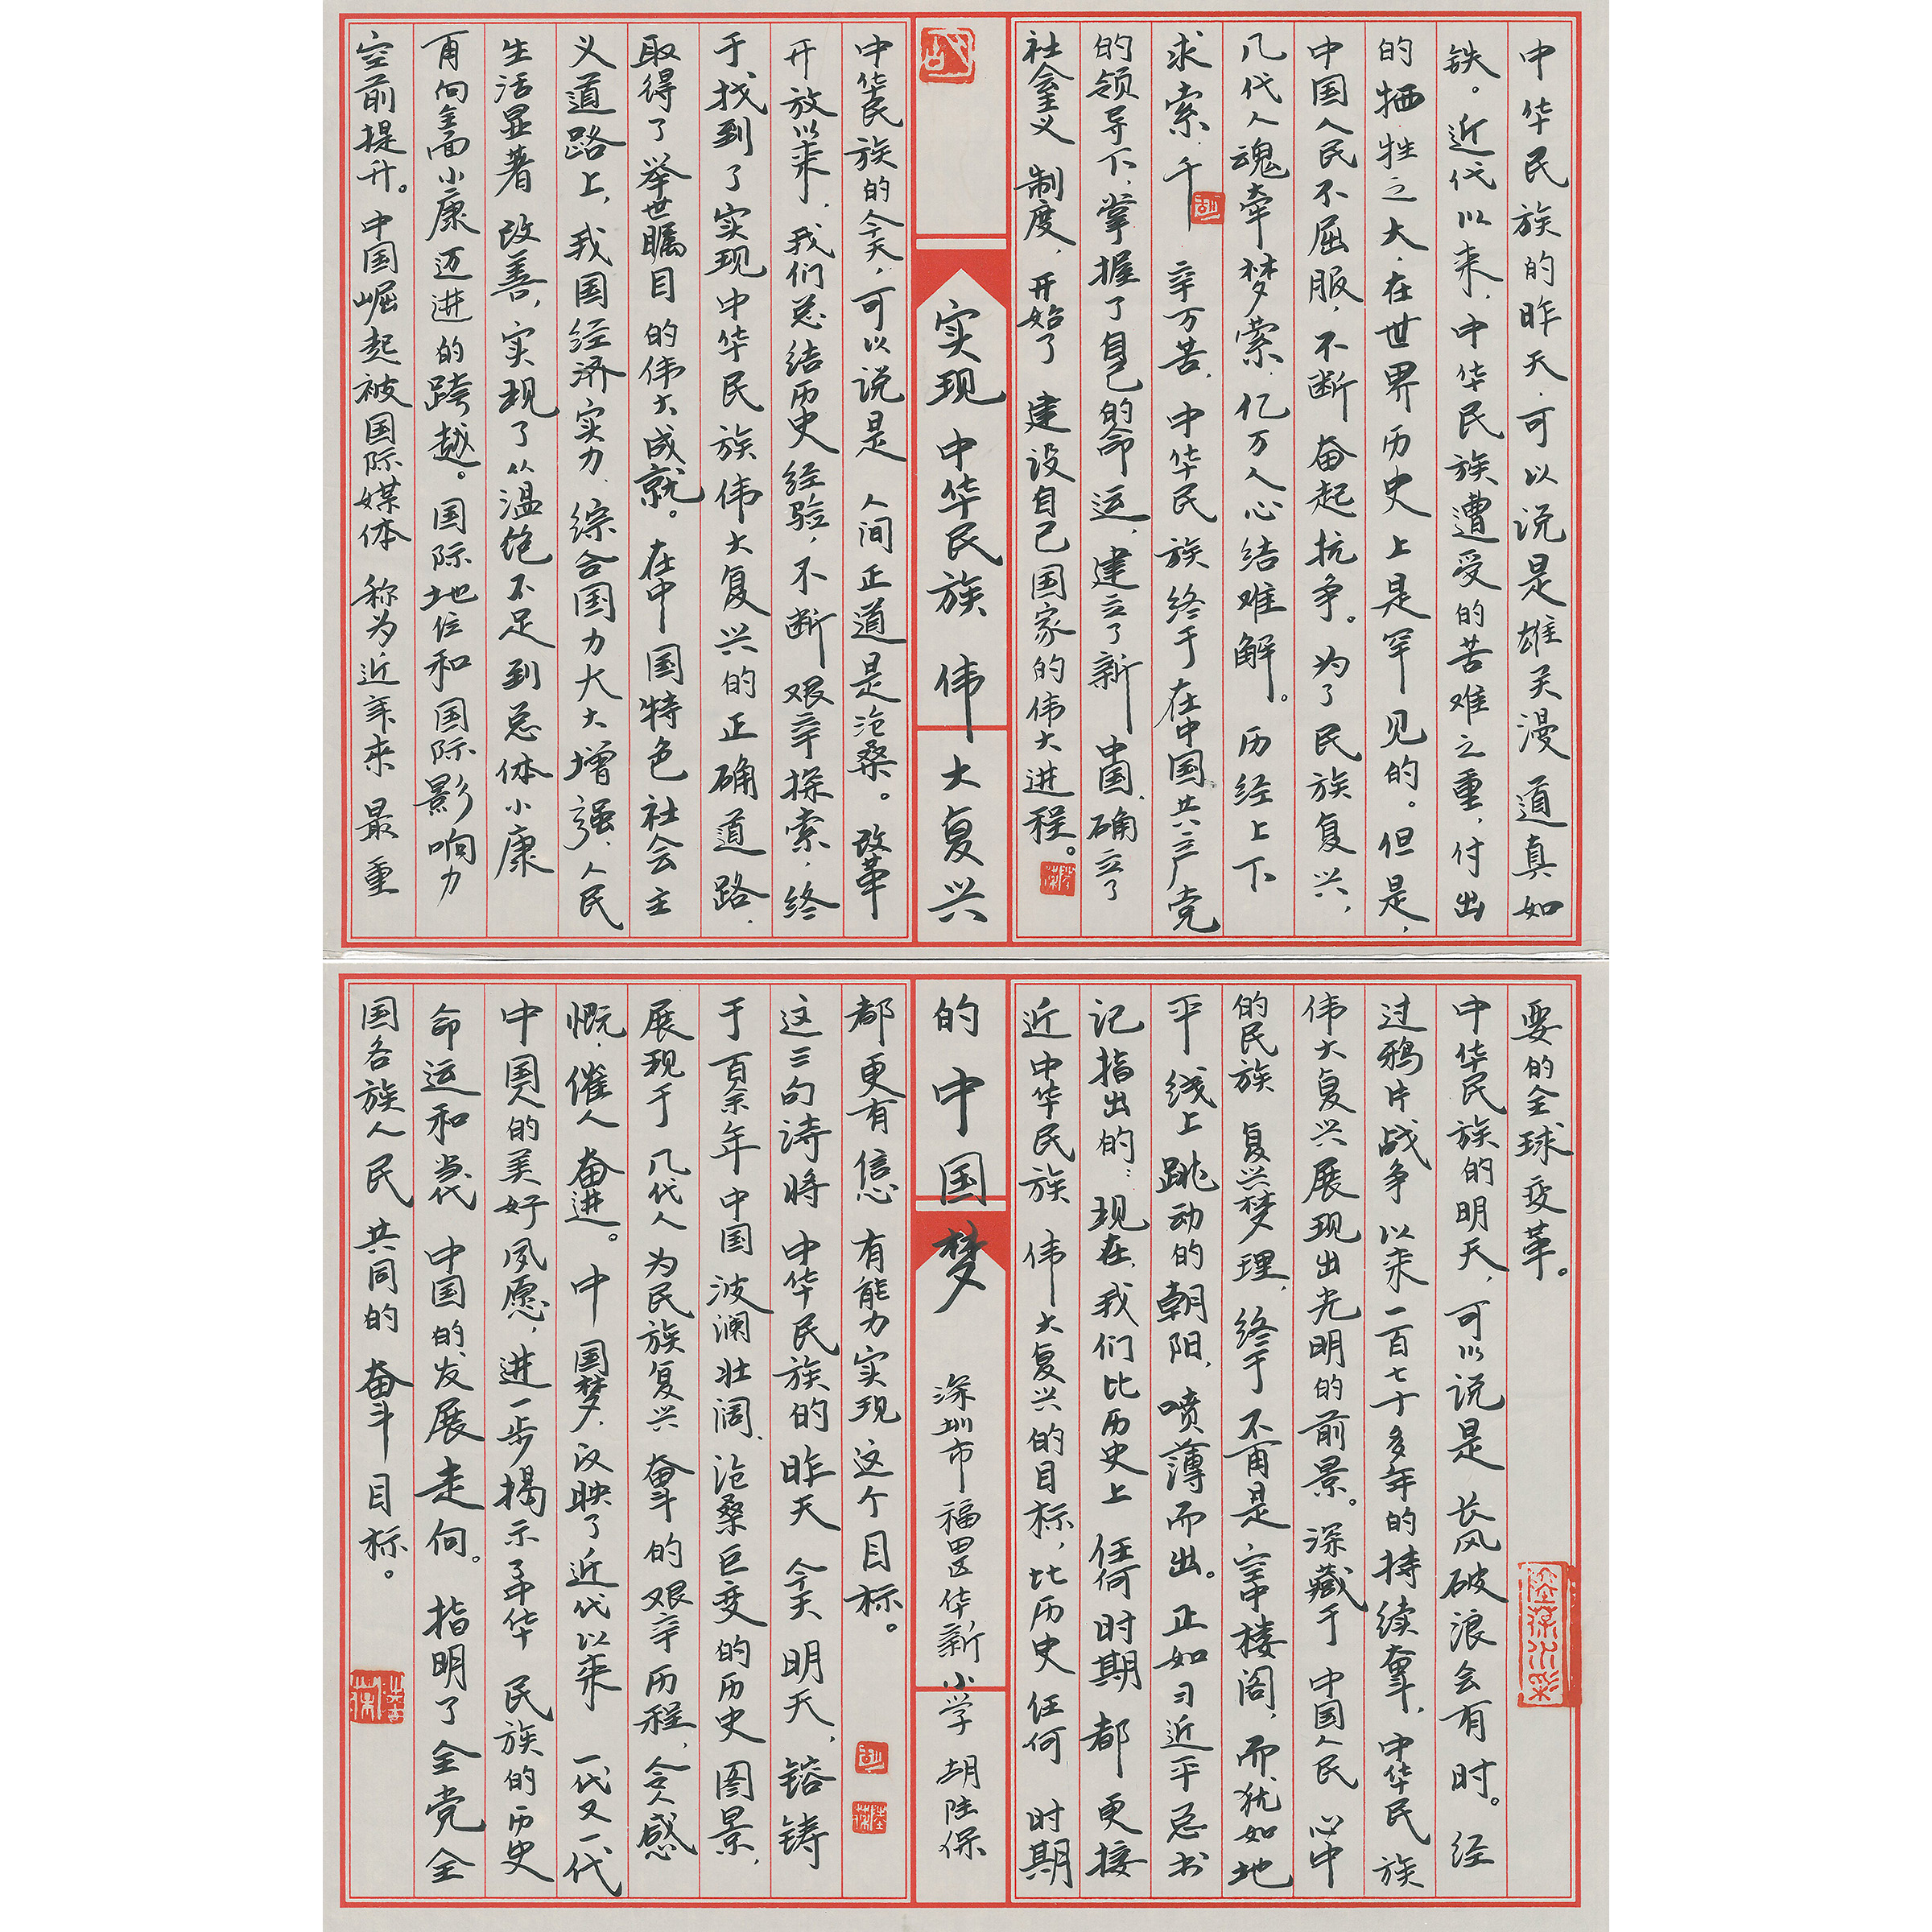 中华民族的昨天，可以说是雄关漫道真如
铁。近代以来，中华民族遭受的苦难之重，付出
的牺牲之大，在世界历史上是罕见的。但是，
中国人民不屈服，不断奋起抗争。为了民族复兴，
几代人魂牵梦萦，亿万人心结难解。历经上下
求索，千辛万苦，中华民族终于在中国共产党
的领导下，掌握了自己的命运，建立了新中国，确立了
社会主义制度，开始了建设自己国家的伟大进程。
实现中华民族伟大复兴
中华民族的今天，可以说是人间正道是沧桑。改革
开放以来，我们总结历史经验，不断艰辛探索，终
于找到了实现中华民族伟大复兴的正确道路，
取得了举世瞩目的伟大成就。在中国特色社会主
义道路上，我国经济实力、综合国力大大增强，人民
生活显著改善，实现了从温饱不足到总体小康
再向全面小康迈进的跨越。国际地位和国际影响力
空前提升。中国崛起被国际媒体称为近年来最重
要的全球变革。
中华民族的明天，可以说是长风破浪会有时。经
过鸦片战争以来一百七十多年的持续奋斗，中华民族
伟大复兴展现出光明的前景。深藏于中国人民心中
的民族复兴梦理，终于不再是空中楼阁，而犹如地
平线上跳动的朝阳，喷薄而出。正如习近平总书
记指出的：现在，我们比历史上任何时期都更接
近中华民族伟大复兴的目标，比历史任何时期
的中国梦 深圳市福田区华新小学 胡陆保
都更有信心有能力实现这个目标。
这三句诗将中华民族的昨天今天明天，镕铸
于百余年中国波澜壮阔、沧桑巨变的历史图景，
展现于几代人为民族复兴奋斗的艰辛历程，令人感
慨，催人奋进。中国梦，反映了近代以来一代又一代
中国人的美好夙愿，进一步揭示了中华民族的历史
命运和当代中国的发展走向。指明了全党全
国各族人民共同的奋斗目标。